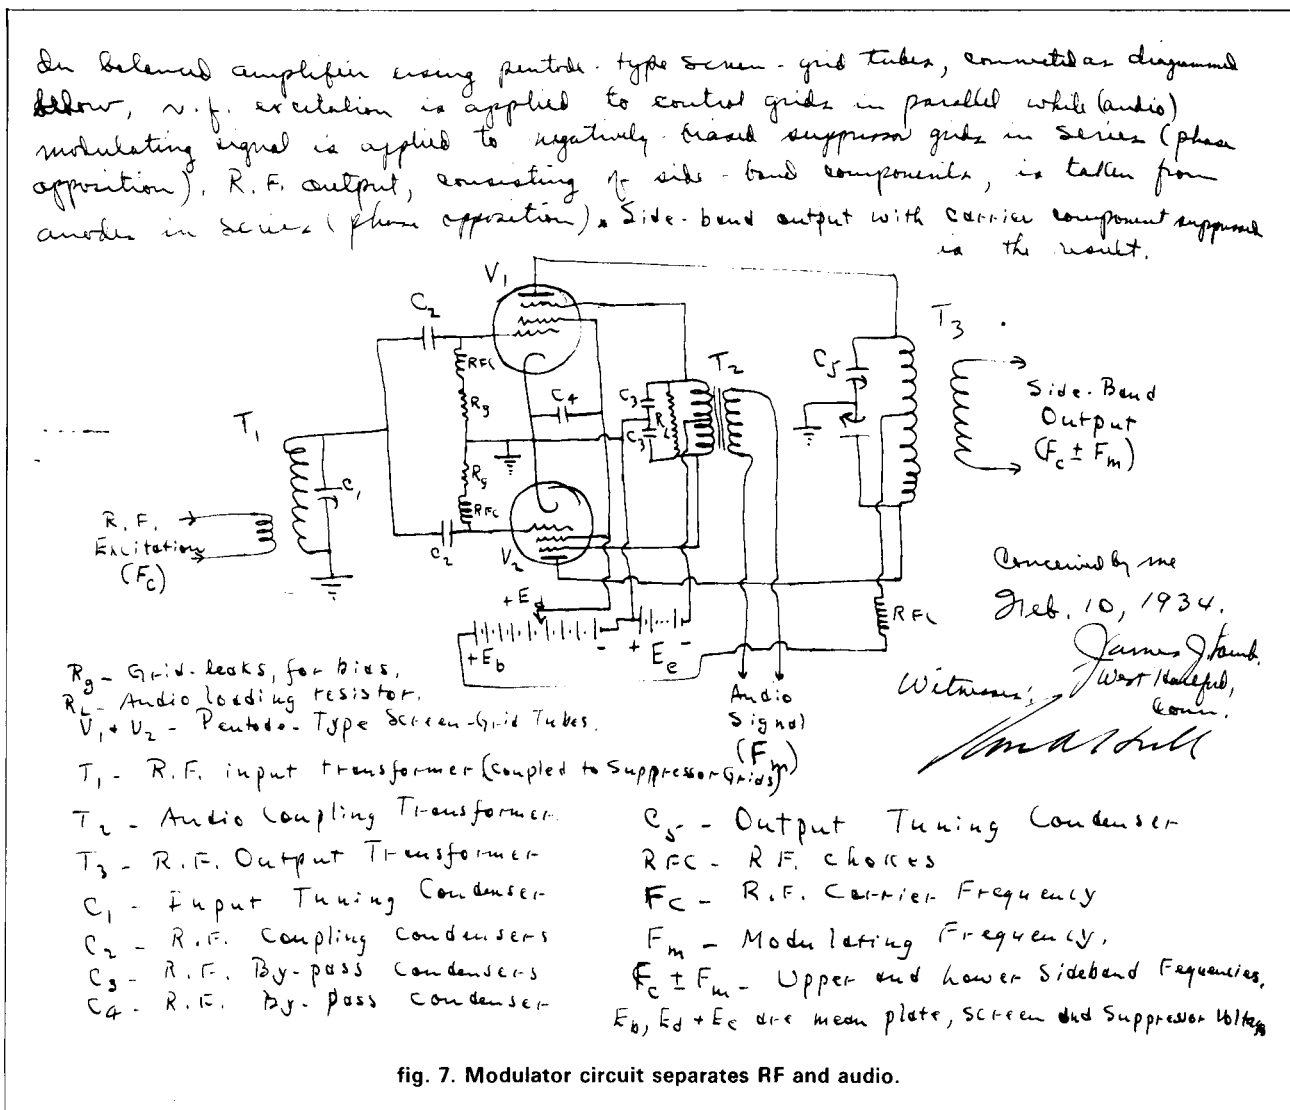 In balanced amplifier using pentode-type screen-grid tubes, connected as diagrammed
below, r.f. excitation is applied to control grids in parallel while (audio)
modulating signal is applied to negatively-biased suppressor grids in series (phase
opposition). R.F. output, consisting of side-band components, is taken from
anodes in series (phase opposition). Side-band output with carrier component suppressed
is the result.
V1
C2
RFC
Rg
C4
T2
C3
RL
C3
C5
T3
Side-Band
Output
(Fc ± Fm)
T1
C1
Rg
RFC
C2
V2
R.F.
Excitation
(Fc)
+Ed
+Eb
-
+
Ec
-
RFC
Audio
Signal
(Fm)
Conceived by me
Feb. 10, 1934.
James J. Lamb.
West Hartford,
Conn.
Witness:
Rg - Grid-leaks, for bias.
RL - Audio loading resistor.
V1 + V2 - Pentode-Type Screen-Grid Tubes.
T1 - R.F. input transformer (coupled to Suppressor Grids)
T2 - Audio Coupling Transformer.
T3 - R.F. Output Transformer
C1 - Input Tuning Condenser
C2 - R.F. Coupling Condensers
C3 - R.F. By-pass Condensers
C4 - R.F. By-pass Condenser
C5 - Output Tuning Condenser
RFC - R.F. chokes
Fc - R.F. Carrier Frequency
Fm - Modulating Frequency.
Fc ± Fm - Upper and Lower Sideband Fequencies.
Eb, Ed + Ec are mean plate, screen and suppressor voltages
fig. 7. Modulator circuit separates RF and audio.